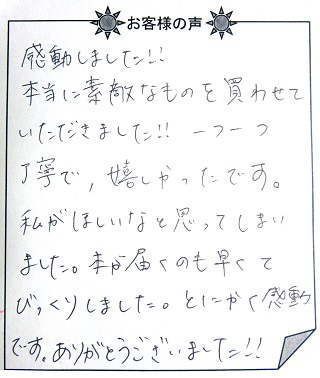 お客様の声
感動しました!!
本当に素敵なものを買わせて
いただきました!! 一つ一つ
丁寧で,嬉しかったです。
私がほしいなと思ってしまい
ました。本が届くのも早くて
びっくりしました。とにかく感動
です。ありがとうございました!!